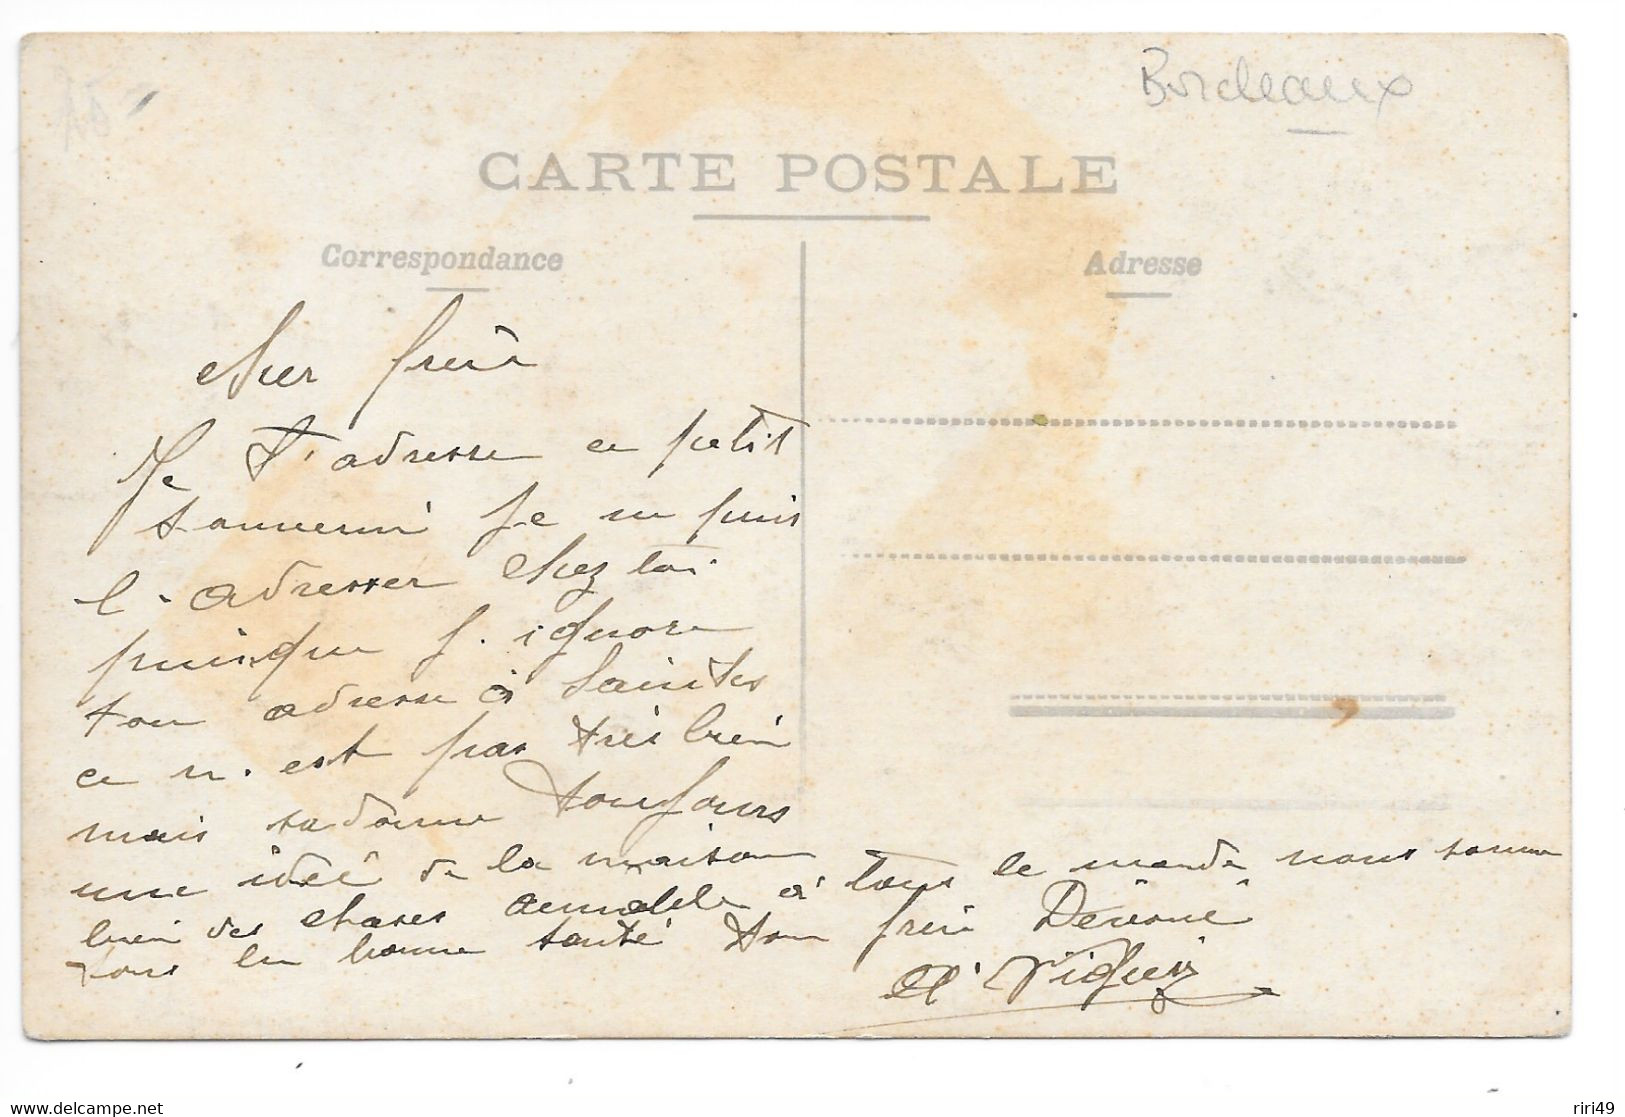 Bordeaux
CARTE POSTALE
Correspondance
Adresse
cher frère
Je t'adresse ce petit
souvenir je ne puis
l'adresser chez toi
puisque j. ignore
ton adresse à Saintes
ce n. est pas très bien
mais sa donne toujours
une idée de la maison
bien des choses aimable à tous le monde nous somme
tous en bonne santé ton frère Dévoué
riri49